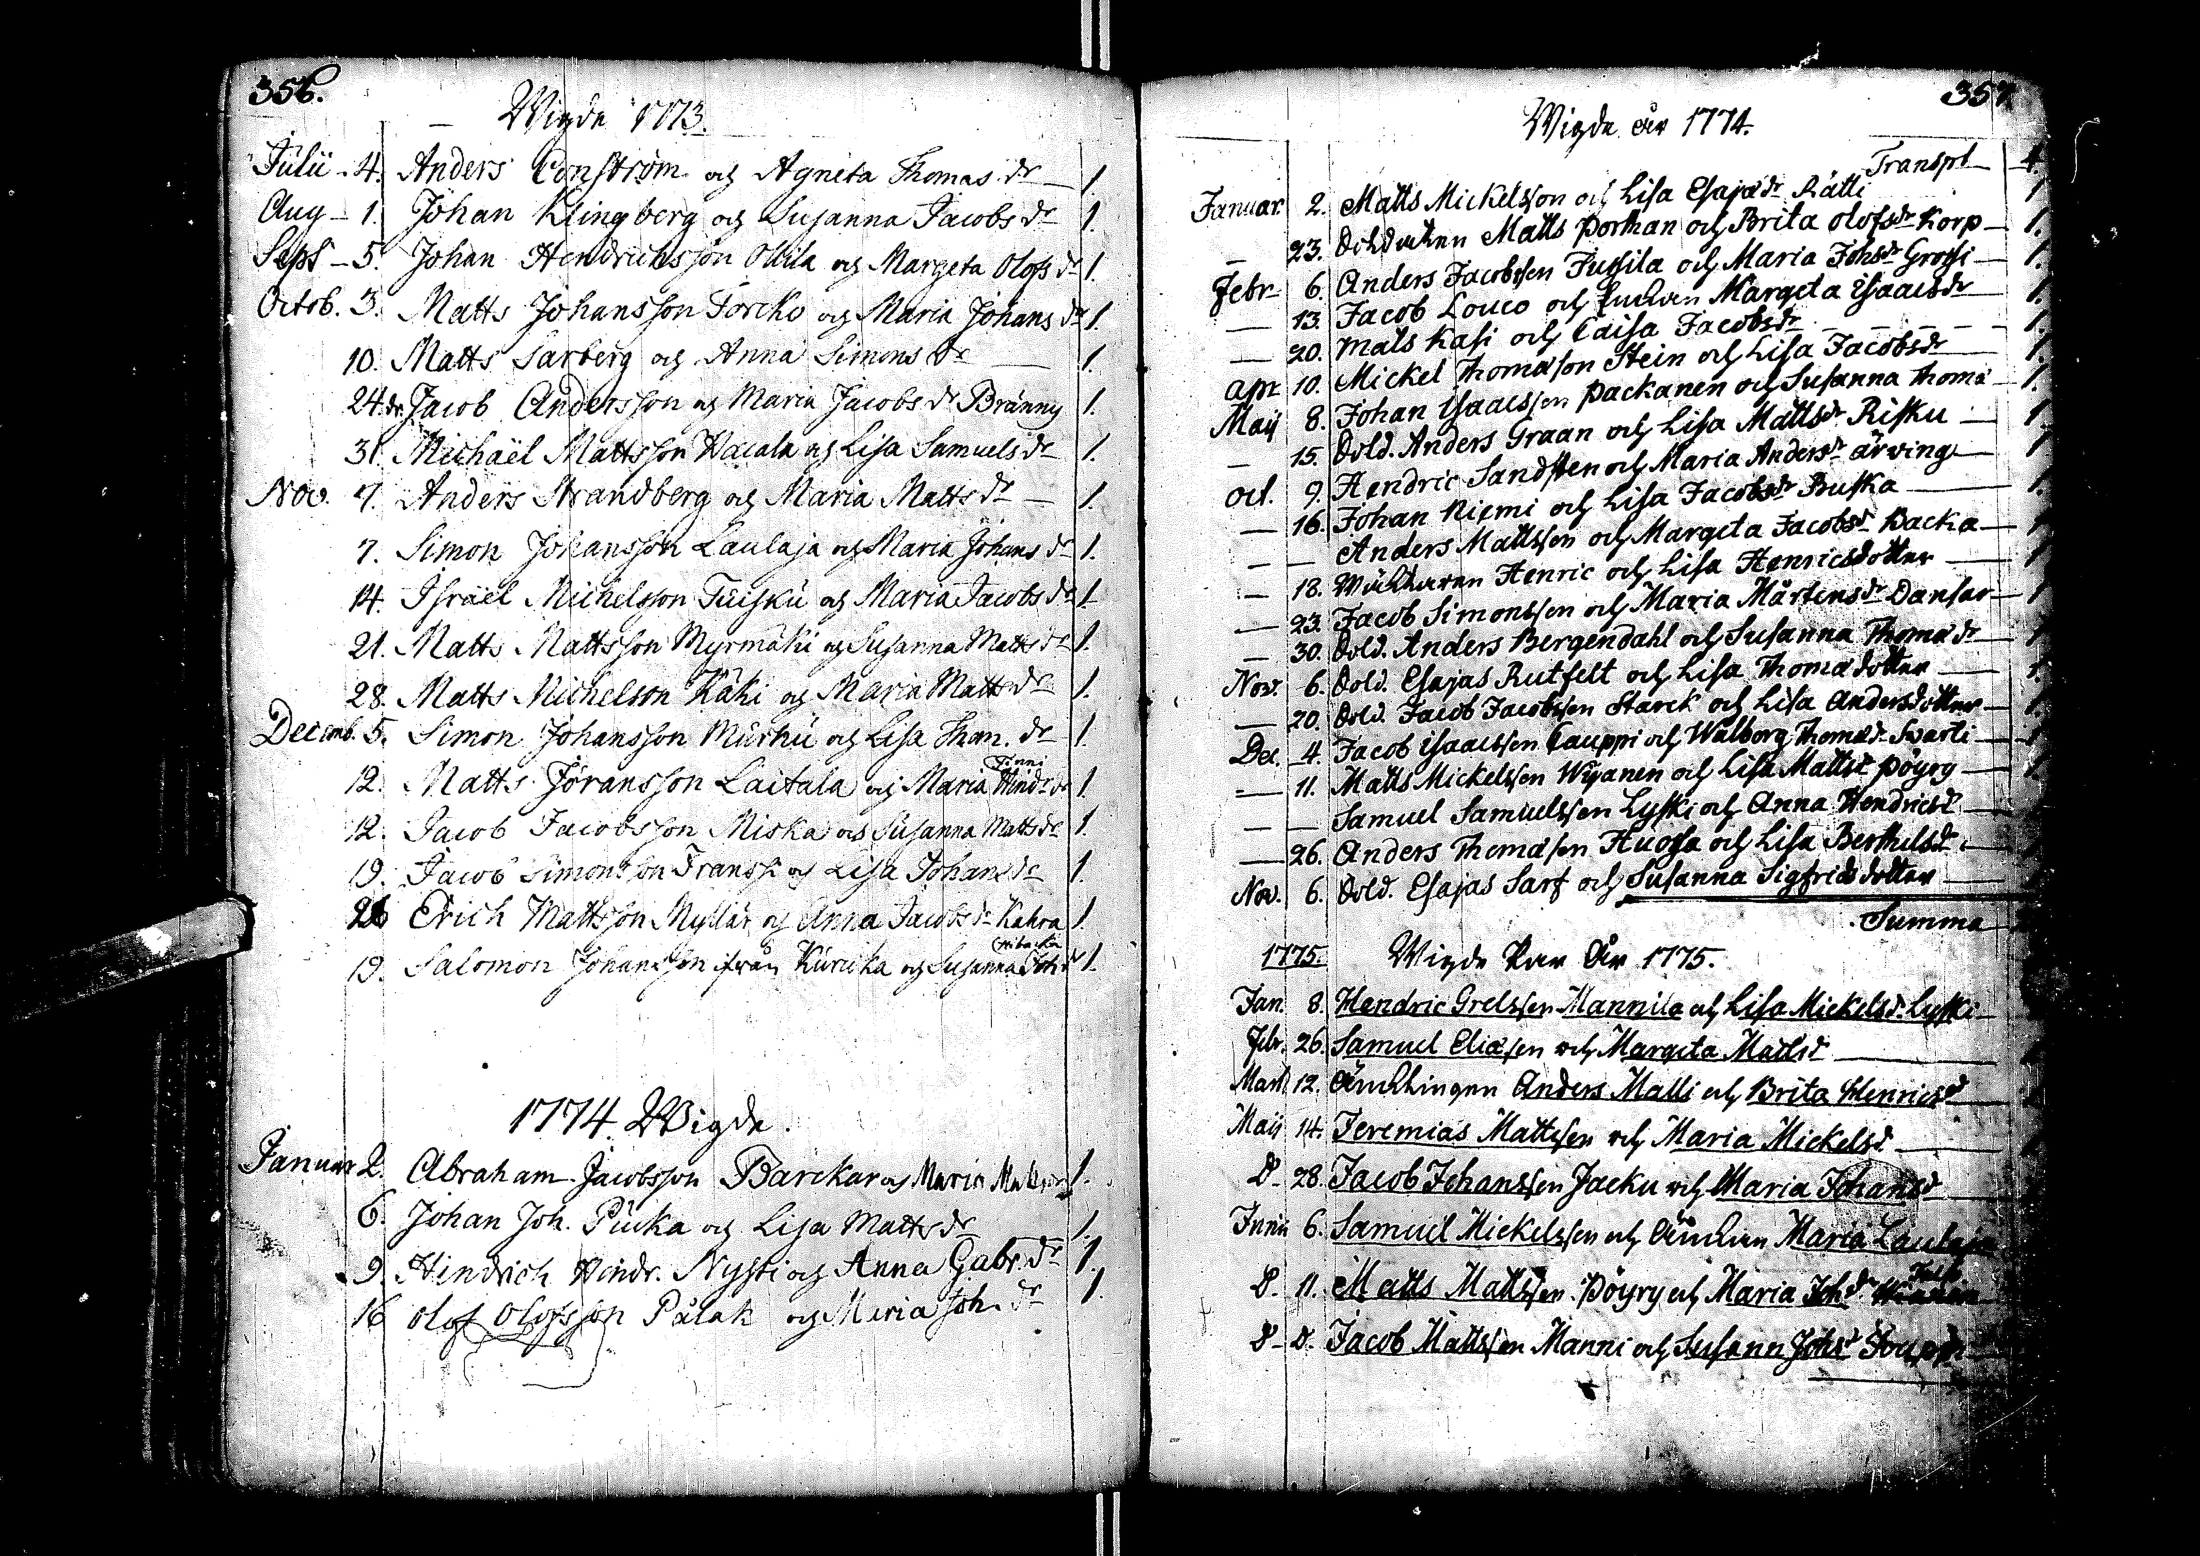 356.
Wigde 1773.
Julii 4. Anders Constrøm och Agneta Thomas dr 1.
Aug 1. Johan Klingberg och Susanna Jacobs dr 1.
Sept 5. Johan Hendrichsson Ollila och Margeta Olofs dr 1.
Octob. 3. Matts Johansson Torcko och Maria Johans dr 1.
10. Matts Sarberg och Anna Simons dr 1.
24. dr. Jacob Andersson och Maria Jacobs dr Bränny 1.
31. Michaël Mattsson Wacala och Lisa Samuels dr 1.
Nov. 7. Anders Strandberg och Maria Matts dr 1.
7. Simon Johansson Laulaja och Maria Johans dr 1.
14. Israël Michelsson Tuisku och Maria Jacobs dr 1.
21. Matts Mattsson Myrmäki och Susanna Matts dr 1.
28. Matts Michelson Käki och Maria Matts dr 1.
Decemb. 5. Simon Johansson Murhu och Lisa Thom. dr 1.
Finni
12. Matts Jöransson Laitala och Maria Hindr. dr 1.
12. Jacob Jacobsson Miska och Susanna Matts dr 1.
19. Jacob Simonsson Franssi och Lisa Johans dr 1.
26 Erich Mattsson Myllär och Anna Jacobs dr Kahra 1.
19. Salomon Johansson ifrån Kuricka och Susanna Joh. dr 1.
1774 Wigde.
Januar 2. Abraham Jacobsson Barckar och Maria 1.
6. Johan Joh. Pucka och Lisa Matts dr 1.
9. Hindrich Hindr. Nysti och Anna Gabr. dr 1.
16 Olof Olofsson Pålak och Maria Joh. dr 1.
357.
Wigde år 1774.
Transpt 4.
Januar. 2. Matts Mickelsson och Lisa Esajædr Rätti 1
23. Matts Porthan och Brita Olofsdr Korp 1.
Febr 6. Anders Jacobssen Jussila och Maria Johsdr Grossi 1.
13. Jacob Louco och Margeta Isaacsdr 1.
20. Mats Kasi och Caisa Jacobsdr 1.
apr 10. Mickel Thomæson Stein och Lisa Jacobsdr 1
Maij 8. Johan Isaacssen Packanen och Susanna Thomæ 1.
15. Sold. Anders Graan och Lisa Mattsdr Risku 1
oct. 9. Hendric Sandsten och Maria Andersdr ärving 1
16. Johan Niemi och Lisa Jacobsdr Buska 1.
Anders Mattssen och Margeta Jacobsdr Backa 1
18. Henric och Lisa Henricsdotter 1.
23. Jacob Simonssen och Maria Mårtensdr Dansar 1
30. Sold. Anders Bergendahl och Susanna Thomædr 1
Nov. 6. Sold. Esajas Rutfelt och Lisa Thomædotter 1.
20. Sold. Jacob Jacobssen Starck och Lisa Andersdotter 1.
Dec. 4. Jacob Isaacssen Cauppi och Walborg Thomædr Swarti 1
11. Matts Mickelssen Wiganen och Lisa Mattsdr Pöyry 1.
Samuel Samuelssen Lyski och Anna Hendricsdr
26. Anders Thomæsen Huossa och Lisa Berthelsdr
Nov. 6. Sold. Esajas Sarf och Susanna Sigfridsdotter
Summa
1775. Wigde Par År 1775.
Jan. 8. Hendric Grelssen Mannila och Lisa Mickelsdr Lyski
Febr. 26. Samuel Eliæsen och Margeta Mattsdr
Mart. 12. Änklingen Anders Malli och Brita Henricsdr
Maij 14. Jeremias Mattssen och Maria Mickelsdr
D 28. Jacob Johanssen Jacku och Maria Johansdr
Junii 6. Samuel Mickelssen och Änkan Maria Laulaja
D. 11. Matts Mattssen Pöyry och Maria Johdr
D D. Jacob Mattssen Manni och Susann Johsdr